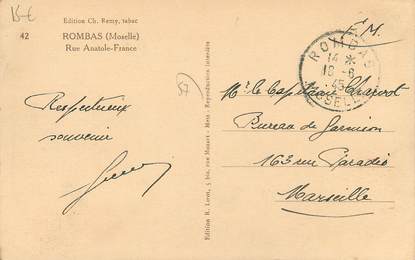 15-€
Edition Ch. Remy, tabac
42 ROMBAS (Moselle)
Rue Anatole-France
F.M.
ROMBAS
14 *
18 -6
45
MOSELLE
57
Respectueux
souvenir
Mr le Capitaine
Bureau de Garnison
163 rue Paradis
Marseille
Edition R. Loret, 5 bis, rue Mozart - Metz - Reproduction Interdite